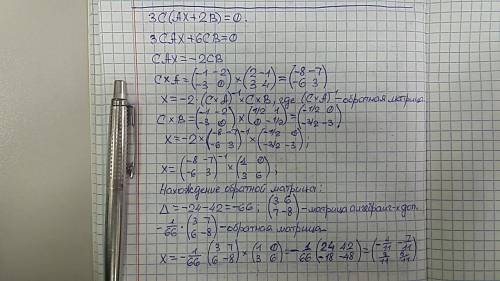 3C(AX+2B)=0.
3CAX+6CB=0
CAX=-2CB
C×A=(-1 -2; -3 0)×(2 -1; 3 4)=(-8 -7; -6 3)
X=-2·(C×A)⁻¹×C×B, где (C×A)⁻¹-обратная матрица
C×B=(-1 -2; -3 0)×(1/2 1; 0 -1/2)=(-1/2 0; -3/2 -3),
X=-2×(-8 -7; -6 3)⁻¹×(-1/2 0; -3/2 -3);
X=(-8 -7; -6 3)⁻¹×(1 0; 3 6);
Нахождение обратной матрицы:
Δ=-24-42=-66; (3 6; 7 -8)-матрица алгебраич-х доп.
-1/66·(3 7; 6 -8)-обратная матрица.
X=-1/66·(3 7; 6 -8)×(1 0; 3 6)=-1/66(24 42; -18 -48)=